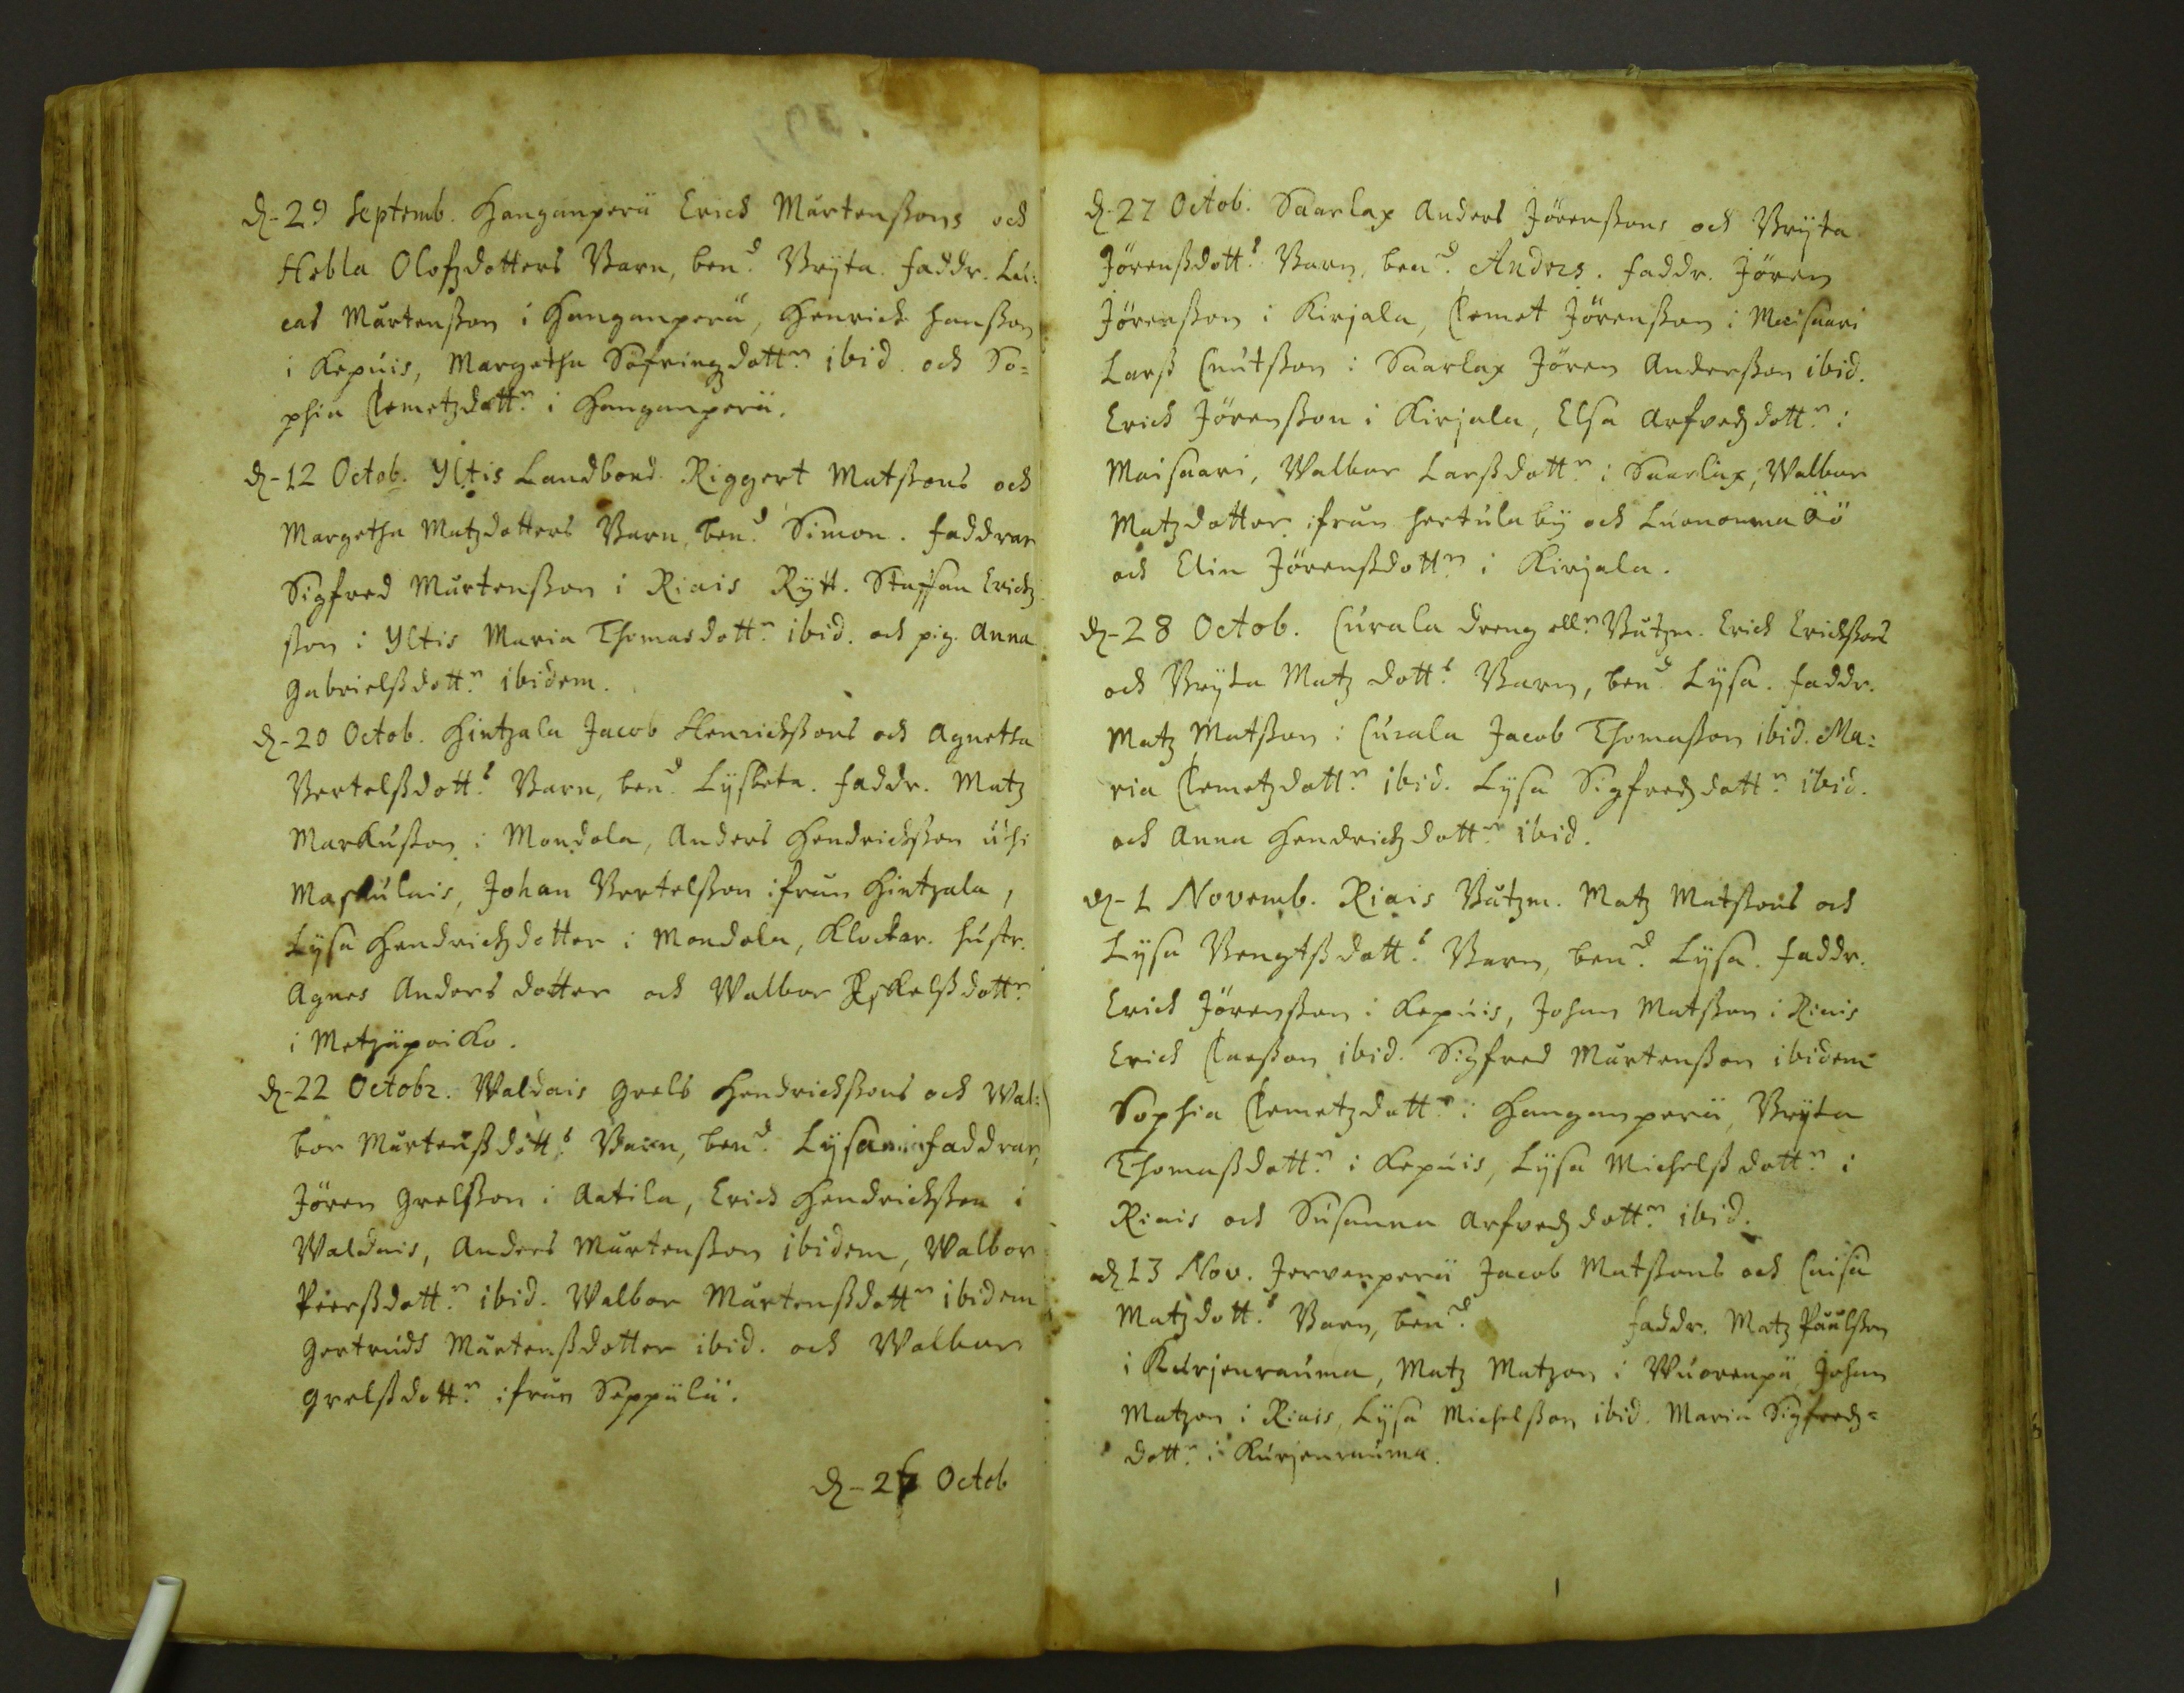 d. 29 Septemb. Hanganperä Erick Mårtenßons och
Hebla Olofzdotters Barn, ben.d Bryta. faddr. Lu:
cas Mårtenßon i Hanganperä, Henrich Hanßon
i Kepuis, Margetha Söfringzdott.r ibid. och So=
phia Clemetzdott.r i Hanganperä.
d. 12 Octob. Yltis Landbond. Riggert Matßons och
Margetha Matzdotters Barn, ben.d Simon. faddrar
Sigfred Mårtenßon i Riais Rytt. Staffan Erichz
ßon i Yltis Maria Thomasdott.r ibid. och pig. Anna
Gabrielßdott.r ibidem.
d. 20 Octob. Hintzala Jacob Henrickßons och Agnetha
Bertelßdott.s Barn, ben.d Lysbeta. faddr. Matz
Markußon i Mondola, Anders Hendrickßon uthi
Maskulais, Johan Bertelßon ifrån Hintzala,
Lysa Hendrichzdotter i Mondola, Klockar. hustr.
Agnes Anders dotter och Walbor Eskelßdott.r
i Metzäpoiko.
d. 22 Octobr. Waldais Grels Hendrickßons och Wal:
bor Mårtenßdott.s Barn, ben.d Lysa faddrar,
Jören Grelßon i Aatila, Erich Hendrickßon i
Waldais, Anders Mårtenßon ibidem, Walbor
Peerßdott.r ibid. Walbor Mårtenßdott.r ibidem
Gertrudh Mårtenßdotter ibid. och Walbor
Grelßdott.r ifrån Seppälä.
d. 27 Octob
d. 27 Octob. Saarlax Anders Jörenßons och Bryta
Jörenßdott.s Barn, ben.d Anders. faddr. Jören
Jörenßon i Kirjala, Clemet Jörenßon i Maisaari
Larß Cnutßon i Saarlax Jören Anderßon ibid.
Erich Jörenßon i Kirjala, Elsa Arfvedzdott.r i
Maisaari, Walbor Larßdott.r i Saarlax, Walbor
Matzdotter ifrån hertula by och Luononma Öö
och Elin Jörenßdott.r i Kirjala.
d. 28 Octob. Curala dreng ell.r Båtzm. Erich Erickßons
och Bryta Matz dott.s Barn, ben.d Lysa. faddr.
Matz Matßon i Curala Jacob Thomaßon ibid. Ma:
ria Clemetzdott.r ibid. Lysa Sigfredzdott.r ibid.
och Anna Hendrichzdott.r ibid.
d. 1 Novemb. Riais Båtzm. Matz Matßons och
Lysa Bengtßdott.s Barn, ben.d Lysa. faddr.
Erich Jörenßon i Kepuis, Johan Matßon i Riais
Erich Claßon ibid. Sigfred Mårtenßon ibidem
Sophia Clemetzdott.r i Hanganperä, Bryta
Thomaßdott.r i Kepuis, Lysa Michelßdott.r i
Riais och Susanna Arfvedzdott.r ibid.
d. 13 Nov. Jervenperä Jacob Matßons och Caisa
Matzdott.s Barn, ben.d faddr. Matz Påulßon
i Kurjenrauma, Matz Matzon i Wuorenpä Johan
Matzon i Riais, Lysa Michelßon ibid. Maria Sigfredz=
dott.r i Kurjenrauma.